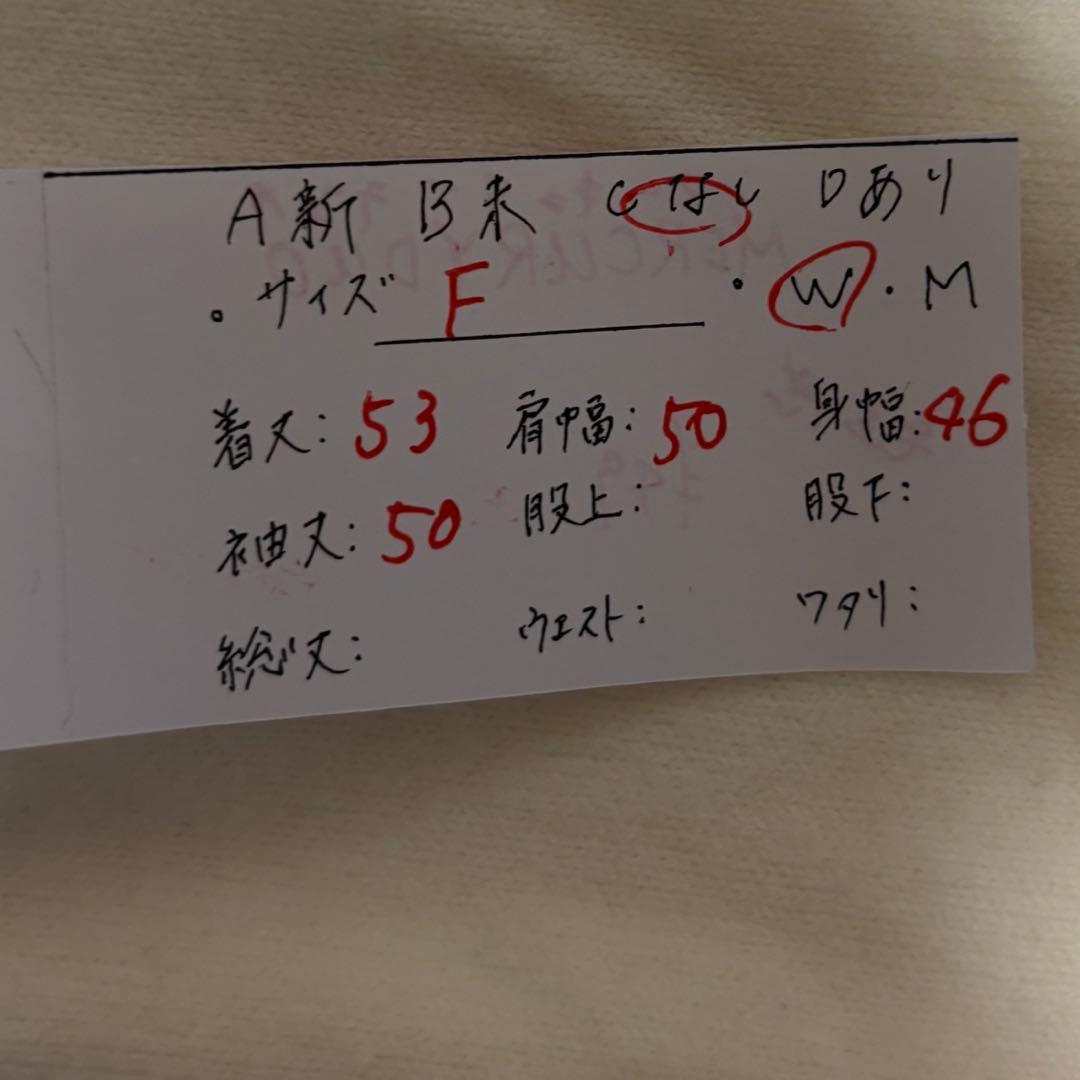 A新 B未 Cなし Dあり
・サイズ F ・W・M
着丈:53 肩幅:50 身幅:46
袖丈:50 股上: 股下:
総丈: ウエスト: ワタリ: